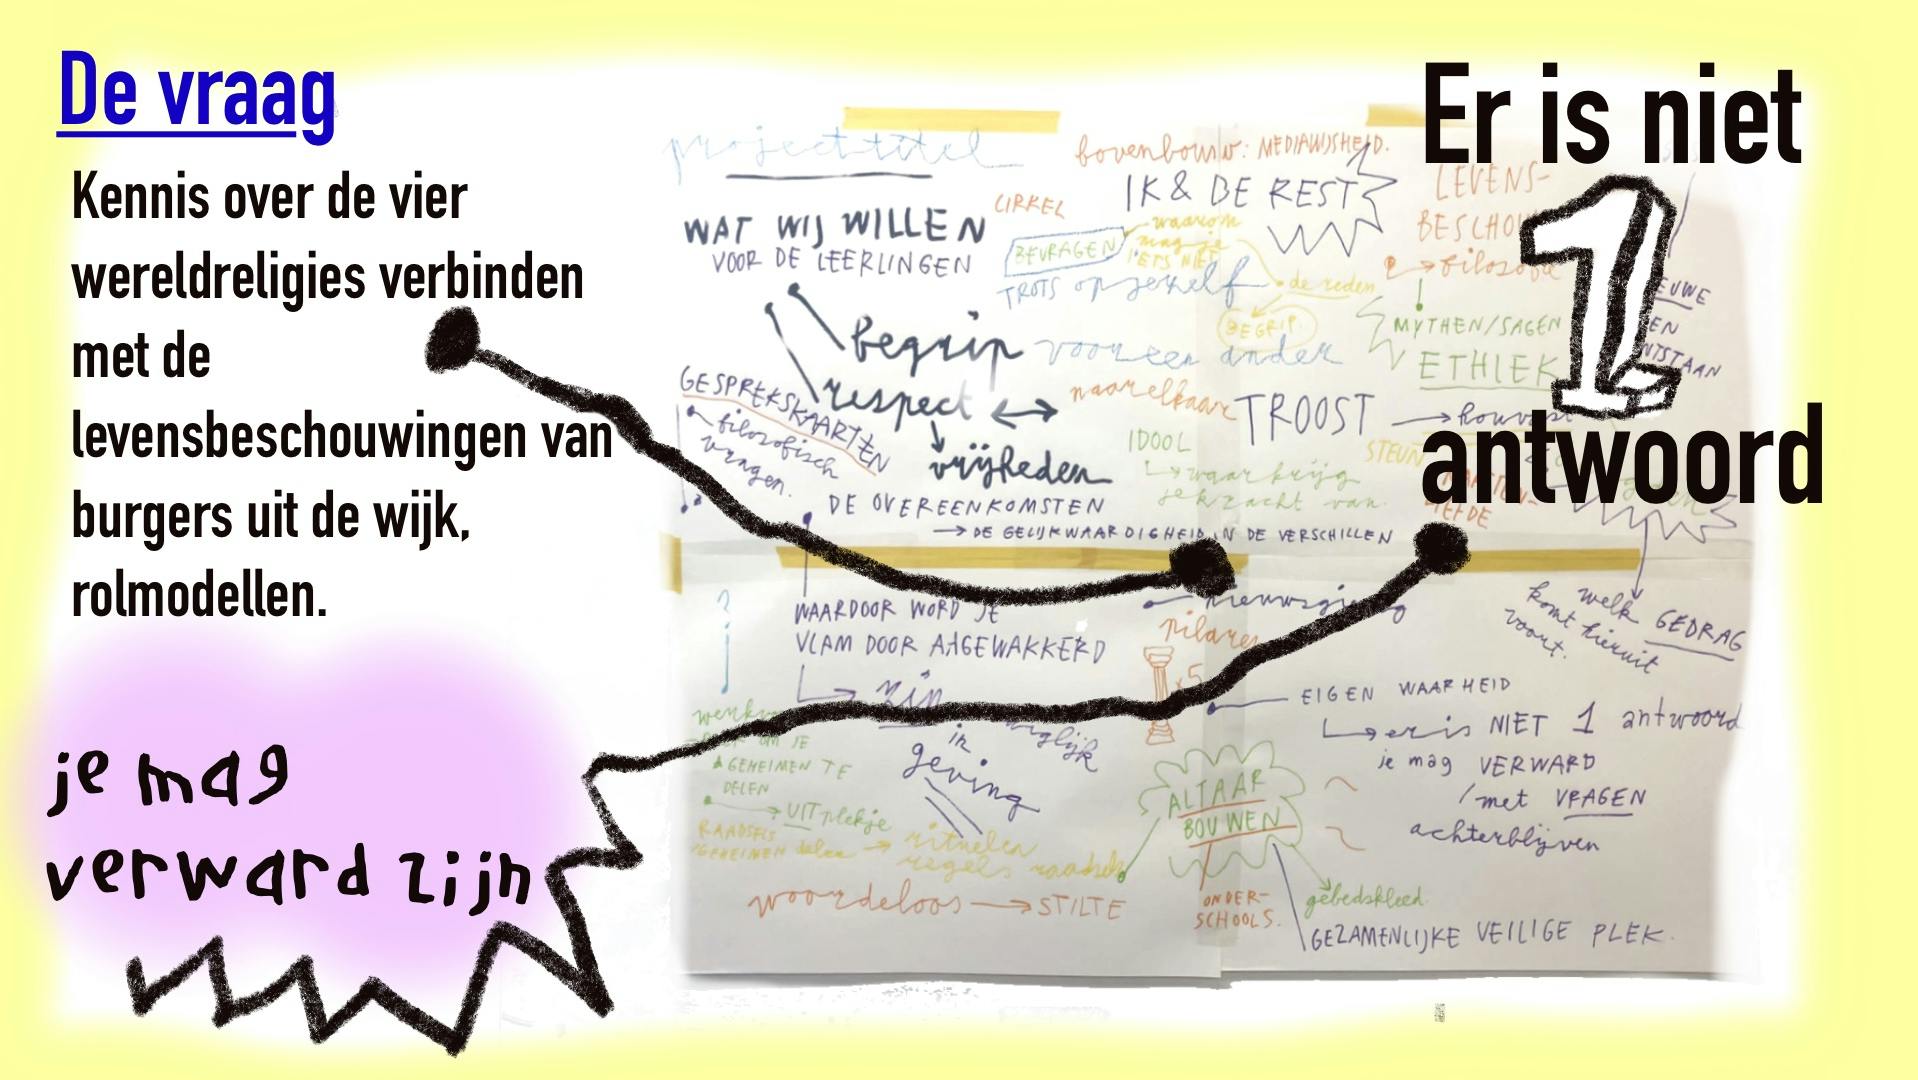 De vraag
Kennis over de vier
wereldreligies verbinden
met de
levensbeschouwingen van
burgers uit de wijk,
rolmodellen.
je mag
verward zijn
Er is niet
1
antwoord
projecttitel
WAT WIJ WILLEN
VOOR DE LEERLINGEN
begrip voor een ander
respect ↔ naar elkaar
vrijheden
GESPREKSKAARTEN
filosofisch
vragen.
DE OVEREENKOMSTEN
→ DE GELIJKWAARDIGHEID IN DE VERSCHILLEN
bovenbouw: MEDIAWIJSHEID.
IK & DE REST
CIRKEL
BEVRAGEN
waarom
mag je
iets niet
TROTS op jezelf
de reden
BEGRIP.
TROOST
→ houvast
STEUN
IDOOL
→ waar krijg
je kracht van
LEVENS-
→ filozofie
MYTHEN/SAGEN
ETHIEK
WAARDOOR WORD JE
VLAM DOOR AANGEWAKKERD
zin
in
geving
nieuwsgierig
pilaren
x5
welk GEDRAG
komt hieruit
voort.
EIGEN WAARHEID
er is NIET 1 antwoord
je mag VERWARD
/met VRAGEN
achterblijven
GEHEIMEN TE
DELEN
→ UIT plekje
RAADSELS
GEHEIMEN delen → rituelen
regels raadsels
woordeloos → STILTE
ALTAAR
BOUWEN
ONDER-
SCHOOLS.
gebedskleed
GEZAMENLIJKE VEILIGE PLEK.